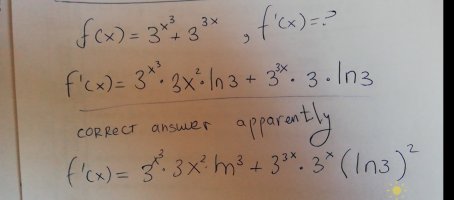 f(x) = 3^{x^3} + 3^{3x} , f'(x) = ?
f'(x) = 3^{x^3} · 3x^2 · ln3 + 3^{3x} · 3 · ln3
CORRECT answer apparently
f'(x) = 3^{x^3} · 3x^2 · ln3 + 3^{3x} · 3^x (ln3)^2